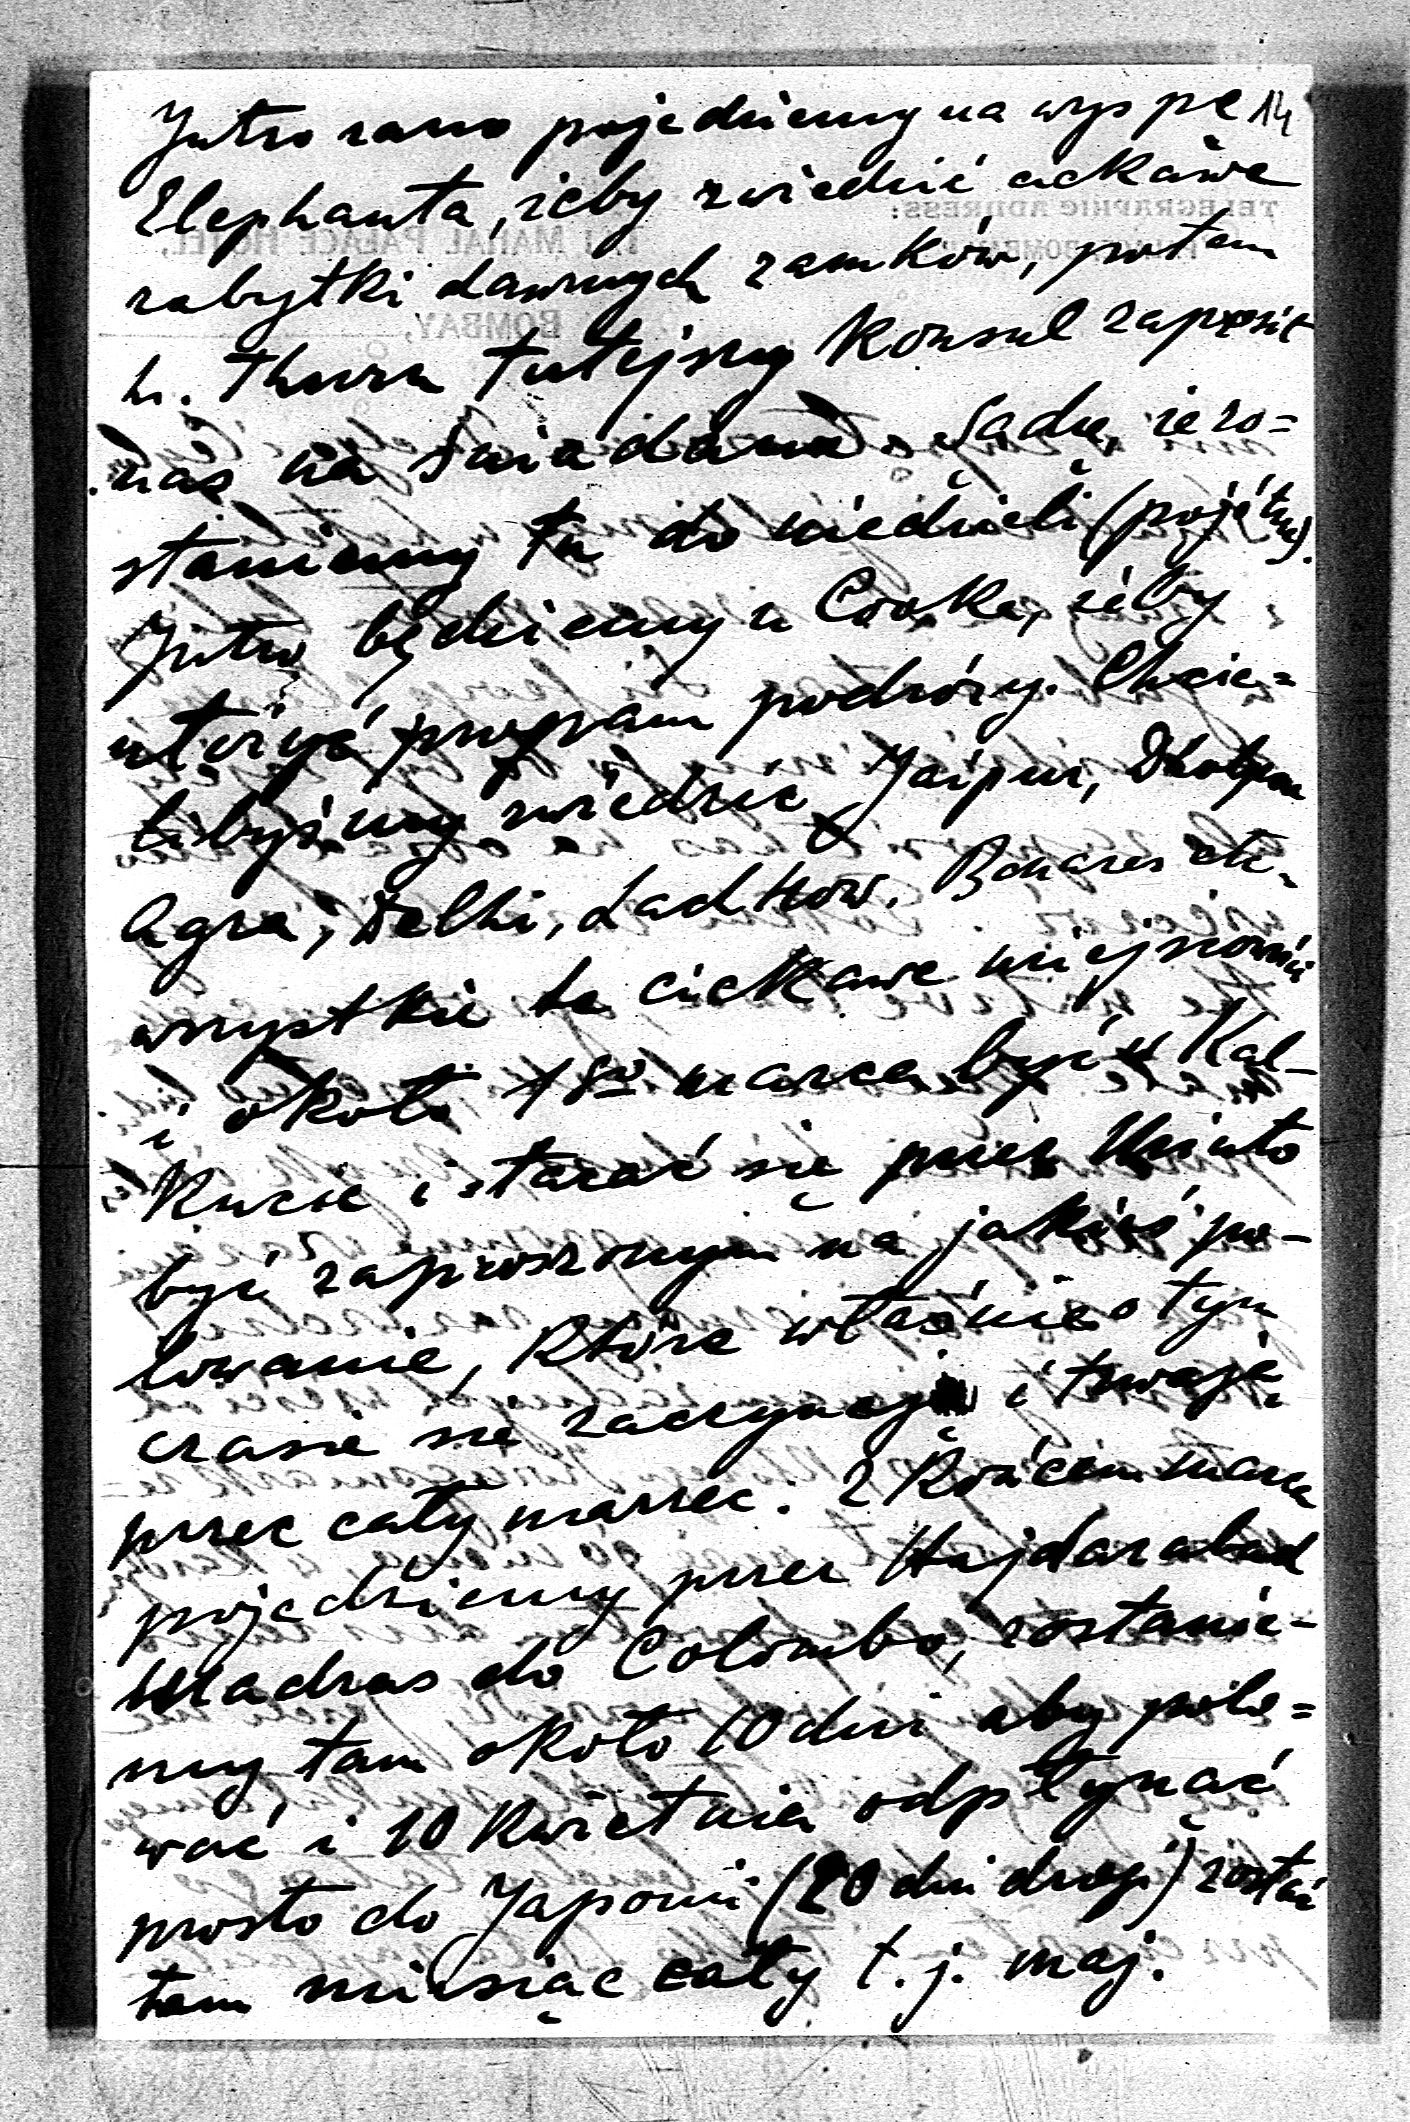 Jutro rano pojedziemy na wyspę 14
Elephanta, żeby zwiedzić ciekawe
zabytki dawnych zamków, potem
h. Thurn tutejszy Konsul zaprosił
nas na śniadanie. Sądzę, że zo=
staniemy tu do niedzieli (pojutrze).
Jutro będziemy u Cooka, żeby
ułożyć program podróży. Chcie=
libyśmy zwiedzić Jaipur,
Agra, Delhi, Lacknow. Benares etc.
wszystkie te ciekawe miejscowości
i około 18go marca być w Kal-
kucie i starać się przez Minto
być zaproszonym na jakieś po-
lowanie, które właśnie o tym
czasie się zaczynają i trwają
przez cały marzec. Z końcem marca
pojedziemy przez Hajdarabad
Madras do Colombo, zostanie-
my tam około 10 dni aby polo=
wać i 10 Kwietnia odpłynąć
prosto do Japonii (20 dni drogi) zostać
tam miesiąc cały t.j. maj.
TELEGRAPHIC ADDRESS:
TAJ MAHAL PALACE HOTEL,
BOMBAY,